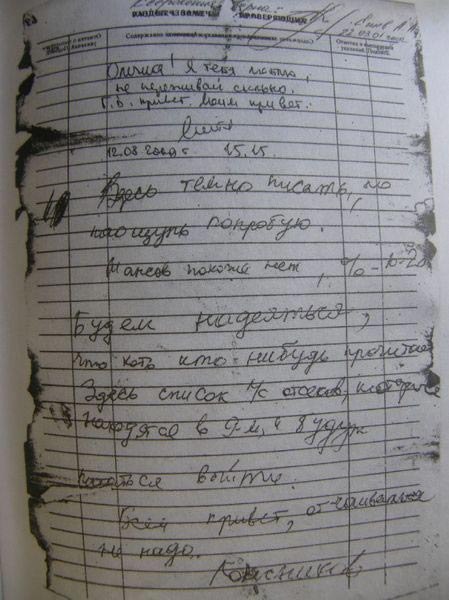 22.03.01
Олечка! Я тебя люблю,
не переживай сильно.
Г.В. привет. Моим привет.
15.15.
Здесь темно писать, но
наощупь попробую.
Шансов похоже нет, % 10-20
Будем надеяться,
что хоть кто нибудь прочитает
Здесь список л/с отсеков, которые
находятся в 9-м, и будут
пытаться выйти.
Всем привет, отчаиваться
не надо.
Колесников